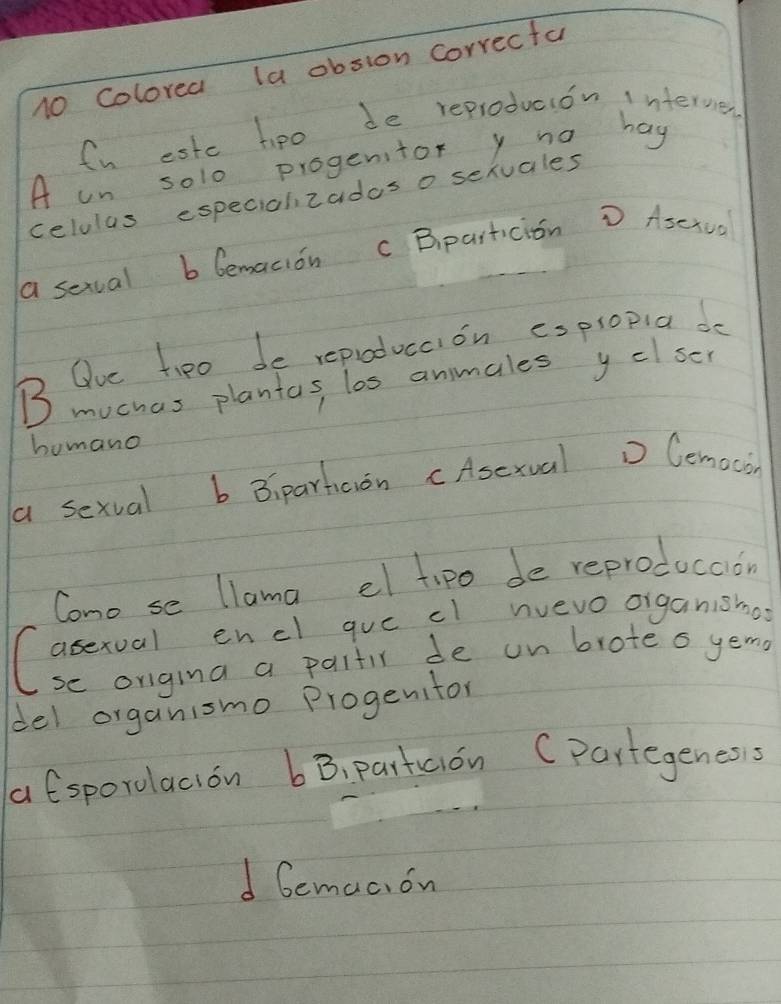 10 Colorea la obsion correcta
En este tipo de reproducion intervien
A un solo progenitor y no hay
celulas especializadas o sexuales
a sexual b Gemación c Bipartición D Asexual
Que tipo de reproducción espropia de
B muchas plantas, los animales y el ser
humano
a sexual b Bipartición c Asexual D Gemación
Como se llama el tipo de reproducción
C asexual en el que el nuevo organismos
se origina a paitir de un brote o yema
del organismo Progenitor
a Esporulación b Bipartición C Partegenesis
d Gemación